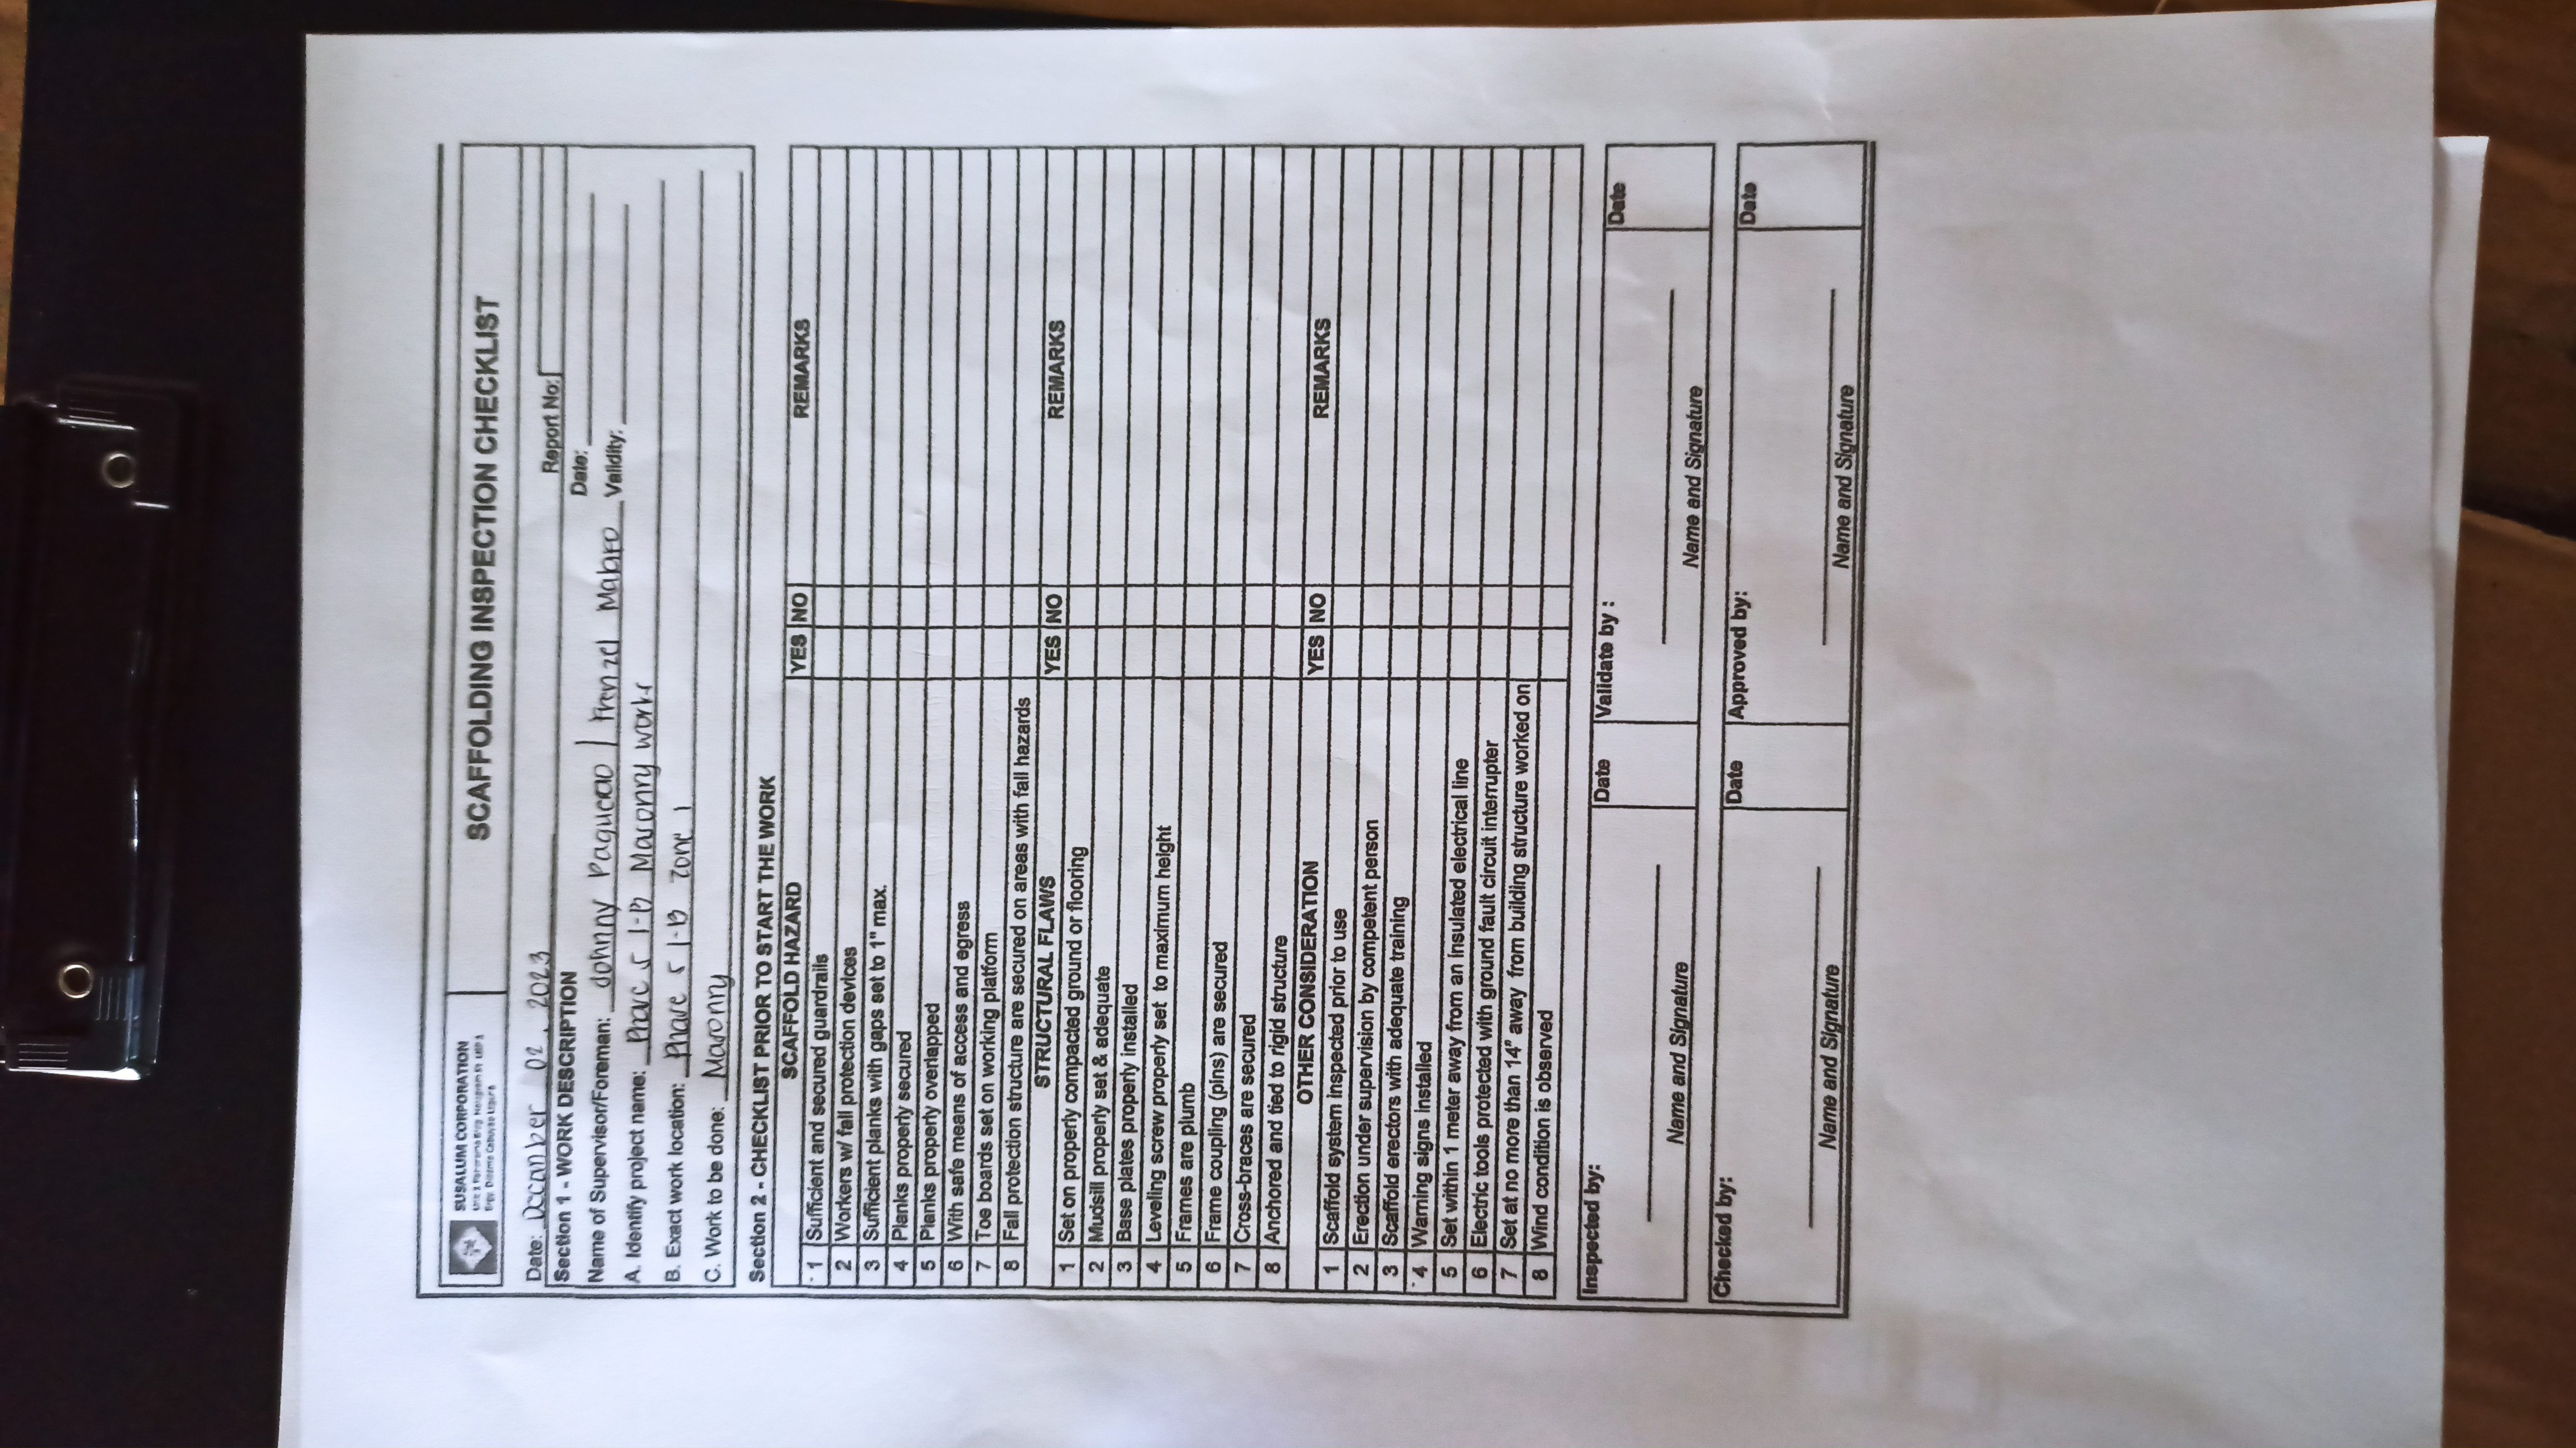 SUSALUM CORPORATION
SCAFFOLDING INSPECTION CHECKLIST
Date: December 02, 2023
Report No:
Section 1 - WORK DESCRIPTION
Date:
Name of Supervisor/Foreman: Johnny Paguerao / Frenzel Mabiro
Validity:
A. Identify project name: Phase 5 1-B Masonry works
B. Exact work location: Phase 5 1-B Zone 1
C. Work to be done: Masonry
Section 2 - CHECKLIST PRIOR TO START THE WORK
SCAFFOLD HAZARD YES NO REMARKS
1 Sufficient and secured guardrails
2 Workers w/ fall protection devices
3 Sufficient planks with gaps set to 1" max.
4 Planks properly secured
5 Planks properly overlapped
6 With safe means of access and egress
7 Toe boards set on working platform
8 Fall protection structure are secured on areas with fall hazards
STRUCTURAL FLAWS YES NO REMARKS
1 Set on properly compacted ground or flooring
2 Mudsill properly set & adequate
3 Base plates properly installed
4 Leveling screw properly set to maximum height
5 Frames are plumb
6 Frame coupling (pins) are secured
7 Cross-braces are secured
8 Anchored and tied to rigid structure
OTHER CONSIDERATION YES NO REMARKS
1 Scaffold system inspected prior to use
2 Erection under supervision by competent person
3 Scaffold erectors with adequate training
4 Warning signs installed
5 Set within 1 meter away from an insulated electrical line
6 Electric tools protected with ground fault circuit interrupter
7 Set at no more than 14" away from building structure worked on
8 Wind condition is observed
Inspected by: Date Validate by : Date
Name and Signature Name and Signature
Checked by: Date Approved by: Date
Name and Signature Name and Signature